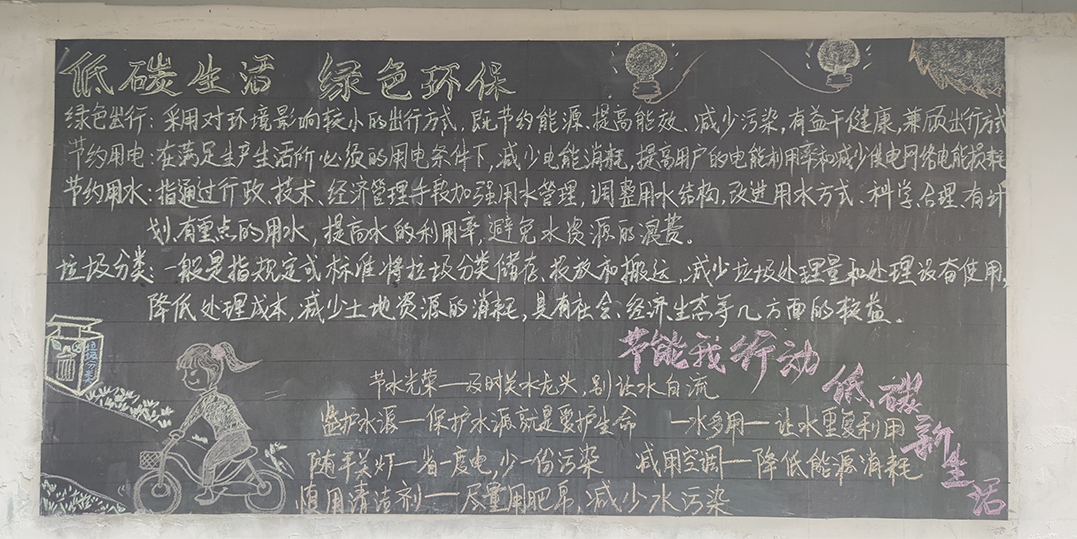 低碳生活 绿色环保
绿色出行：采用对环境影响较小的出行方式，既节约能源、提高能效、减少污染，有益于健康，兼顾出行方式
节约用电：在满足生产生活所必须的用电条件下，减少电能消耗，提高用户的电能利用率和减少供电网络电能损耗
节约用水：指通过行政、技术、经济管理手段加强用水管理，调整用水结构，改进用水方式、科学、合理、有计
划、有重点的用水，提高水的利用率，避免水资源的浪费。
垃圾分类：一般是指规定或标准将垃圾分类储存、投放和搬运，减少垃圾处理量和处理设备使用，
降低处理成本，减少土地资源的消耗，具有社会、经济、生态等几方面的效益。
垃圾分类
节能我行动
低碳新生活
节水光荣—及时关水龙头，别让水自流
监护水源—保护水源就是爱护生命 一水多用—让水重复利用
随手关灯—省一度电，少一份污染 减用空调—降低能源消耗
慎用清洁剂—尽量用肥皂，减少水污染